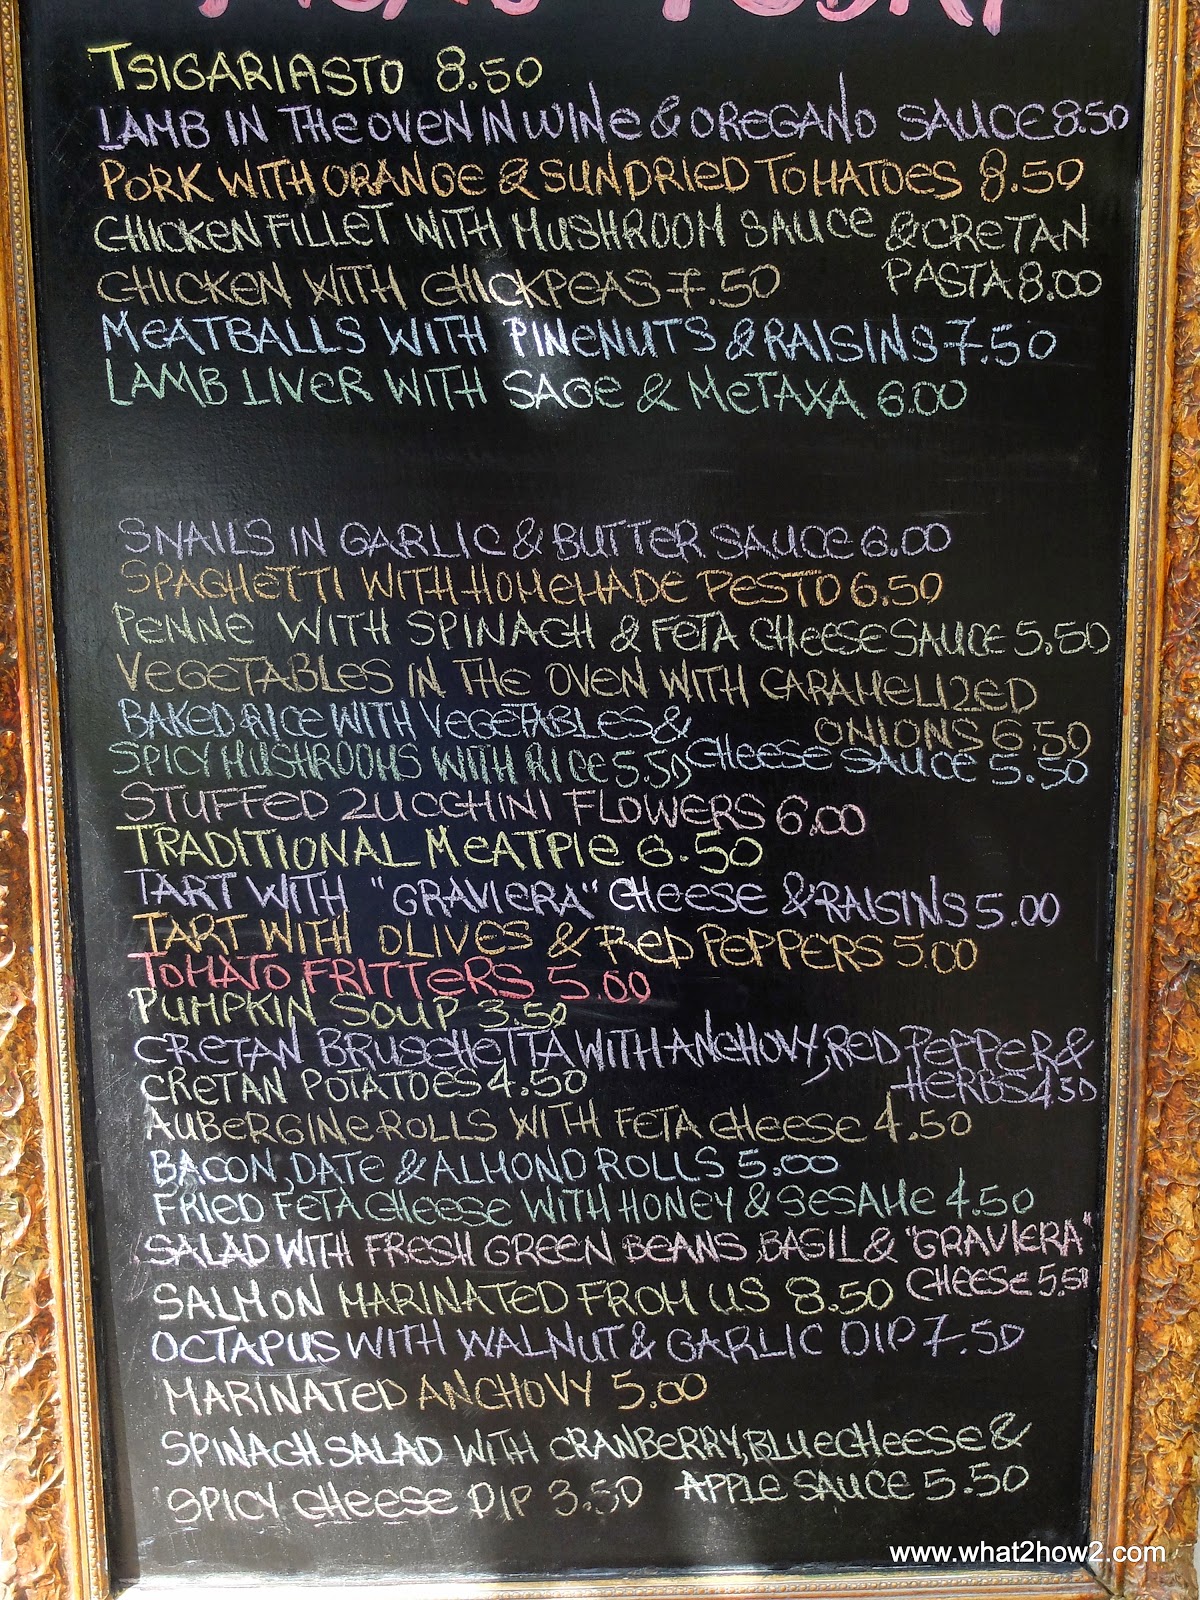 TODAY
TSIGARIASTO 8.50
LAMB IN THE OVEN IN WINE & OREGANO SAUCE 8.50
PORK WITH ORANGE & SUNDRIED TOMATOES 8.50
CHICKEN FILLET WITH MUSHROOM SAUCE & CRETAN
PASTA 8.00
CHICKEN WITH CHICKPEAS 7.50
MEATBALLS WITH PINENUTS & RAISINS 7.50
LAMB LIVER WITH SAGE & METAXA 6.00
SNAILS IN GARLIC & BUTTER SAUCE 6.00
SPAGHETTI WITH HOMEMADE PESTO 6.50
PENNE WITH SPINACH & FETA CHEESE SAUCE 5.50
VEGETABLES IN THE OVEN WITH CARAMELIZED
ONIONS 6.50
BAKED RICE WITH VEGETABLES &
CHEESE SAUCE 5.50
SPICY MUSHROOMS WITH RICE 5.50
STUFFED ZUCCHINI FLOWERS 6.00
TRADITIONAL MEATPIE 6.50
TART WITH "GRAVIERA" CHEESE & RAISINS 5.00
TART WITH OLIVES & RED PEPPERS 5.00
TOMATO FRITTERS 5.00
PUMPKIN SOUP 3.50
CRETAN BRUSCHETTA WITH ANCHOVY, RED PEPPER &
HERBS 4.50
CRETAN POTATOES 4.50
AUBERGINE ROLLS WITH FETA CHEESE 4.50
BACON, DATE & ALMOND ROLLS 5.00
FRIED FETA CHEESE WITH HONEY & SESAME 4.50
SALAD WITH FRESH GREEN BEANS, BASIL & "GRAVIERA"
CHEESE 5.50
SALMON MARINATED FROM US 8.50
OCTAPUS WITH WALNUT & GARLIC DIP 7.50
MARINATED ANCHOVY 5.00
SPINACH SALAD WITH CRANBERRY, BLUECHEESE &
APPLE SAUCE 5.50
SPICY CHEESE DIP 3.50
www.what2how2.com